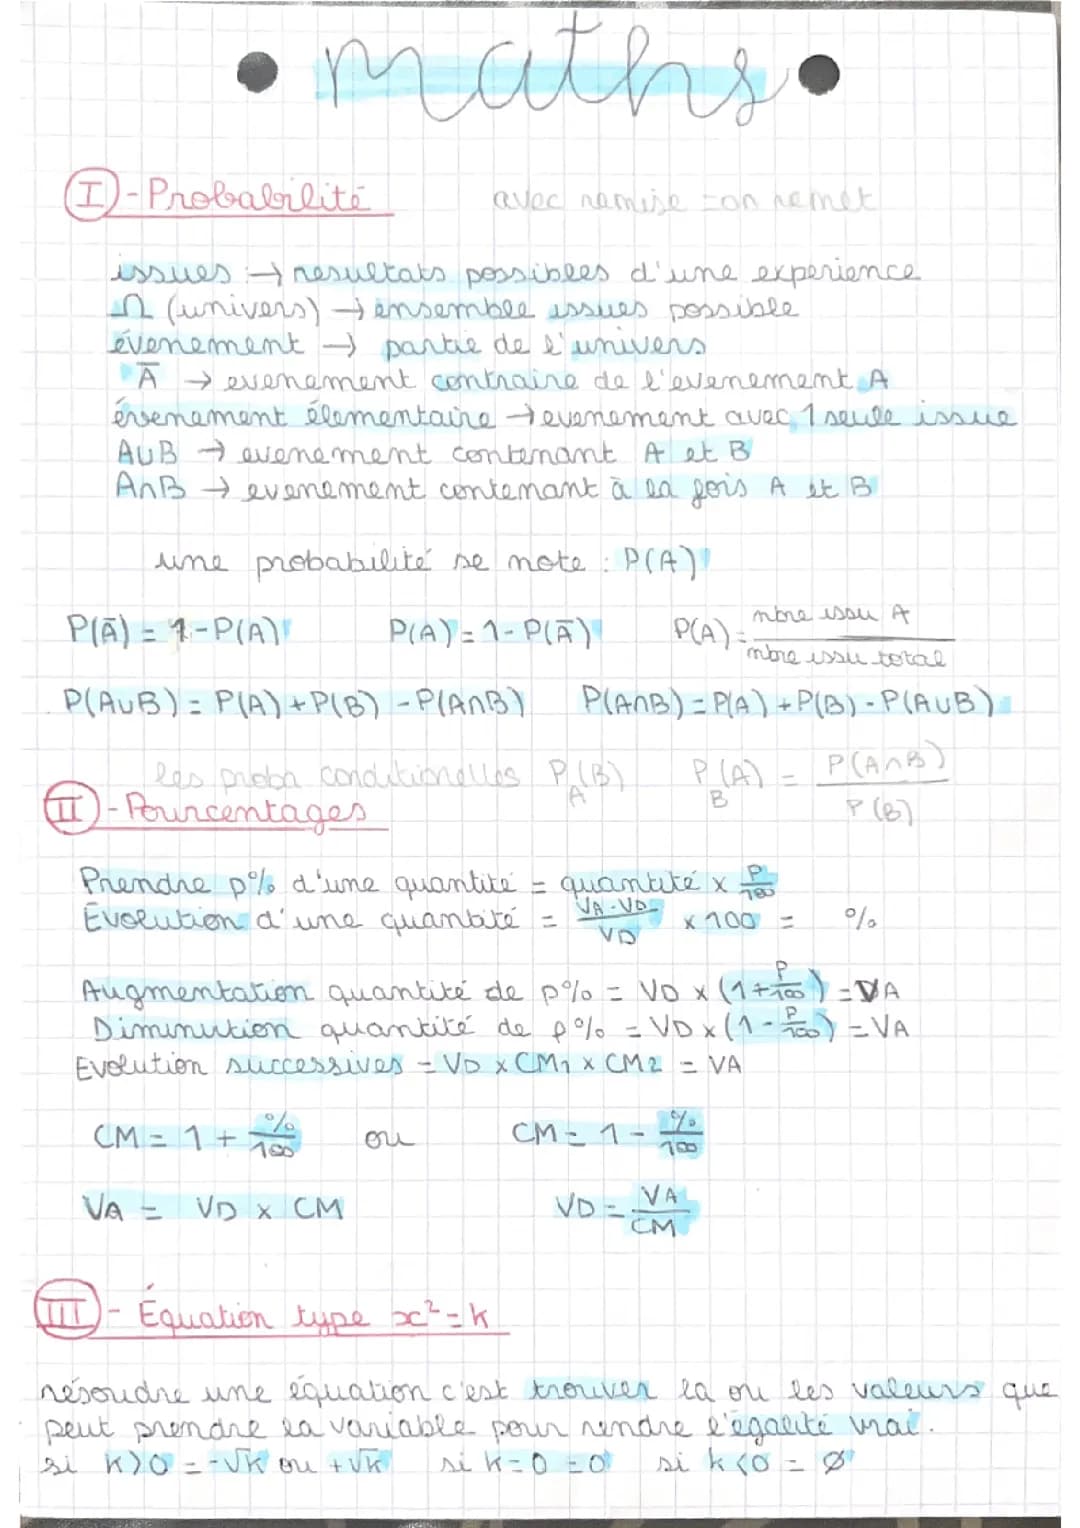 maths
I - Probabilité
avec remise = on remet
issues → resultats possibles d'une experience
Ω (univers) → ensemble issues possible
évenement → partie de l'univers
Ā → evenement contraire de l'evenement A
évenement élementaire → evenement avec 1 seule issue
A∪B → evenement contenant A et B
A∩B → evenement contenant à la fois A et B
une probabilité se note : P(A)
P(Ā) = 1 - P(A) P(A) = 1 - P(Ā) P(A) = nbre issu A / nbre issu total
P(A∪B) = P(A) + P(B) - P(A∩B) P(A∩B) = P(A) + P(B) - P(A∪B)
les proba conditionelles P_A(B) P_B(A) = P(A∩B) / P(B)
II - Pourcentages
Prendre p% d'une quantité = quantité x P/100
Evolution d'une quantité = VA - VD / VD x 100 = %
Augmentation quantité de p% = VD x (1 + P/100) = VA
Diminution quantité de p% = VD x (1 - P/100) = VA
Evolution successives = VD x CM1 x CM2 = VA
CM = 1 + %/100 ou CM = 1 - %/100
VA = VD x CM VD = VA/CM
III - Équation type x² = k
résoudre une équation c'est trouver la ou les valeurs que
peut prendre la variable pour rendre l'égalité vrai.
si k>0 = -√k ou +√k si k=0 = 0 si k<0 = ∅